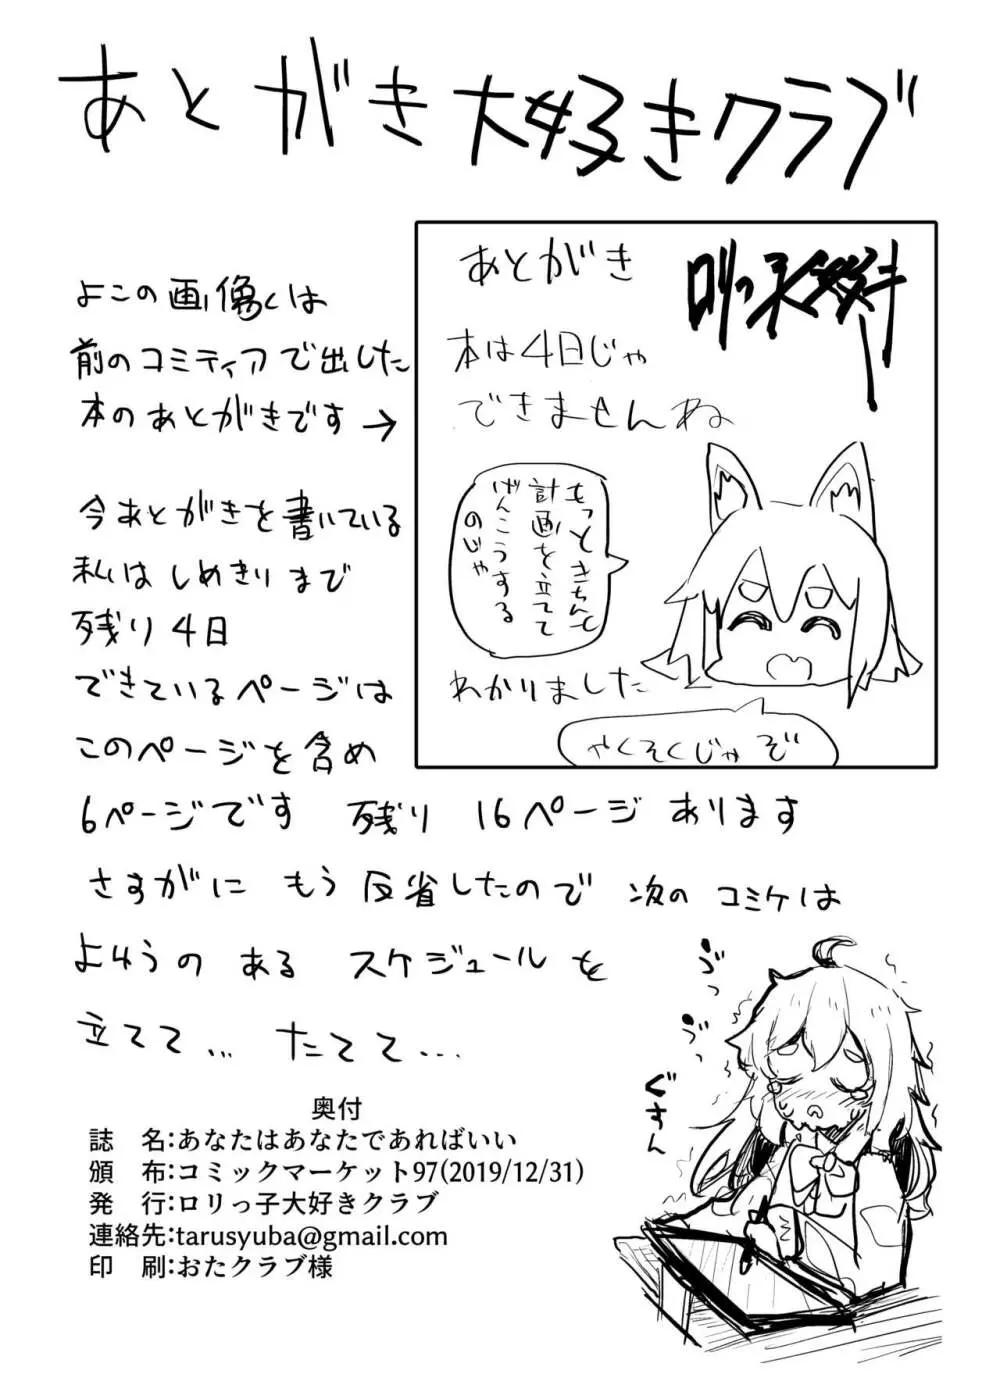 あとがき大好きクラブ
よこの画像くは
前のコミティアで出した
本のあとがきです→
あとがき
本は4日じゃ
できませんね
もっときちんと
計画を立てて
げんこうする
のじゃ
わかりました
やくそくじゃぞ
今あとがきを書いている
私はしめきりまで
残り4日
できているページは
このページを含め
6ページです 残り 16ページ あります
さすがに もう 反省したので 次の コミケは
よゆうの ある スケジュールを
立てて… たてて…
ゔっ
ゔっ
ぐすん
奥付
誌 名:あなたはあなたであればいい
頒 布:コミックマーケット97(2019/12/31)
発 行:ロリっ子大好きクラブ
連絡先:tarusyuba@gmail.com
印 刷:おたクラブ様